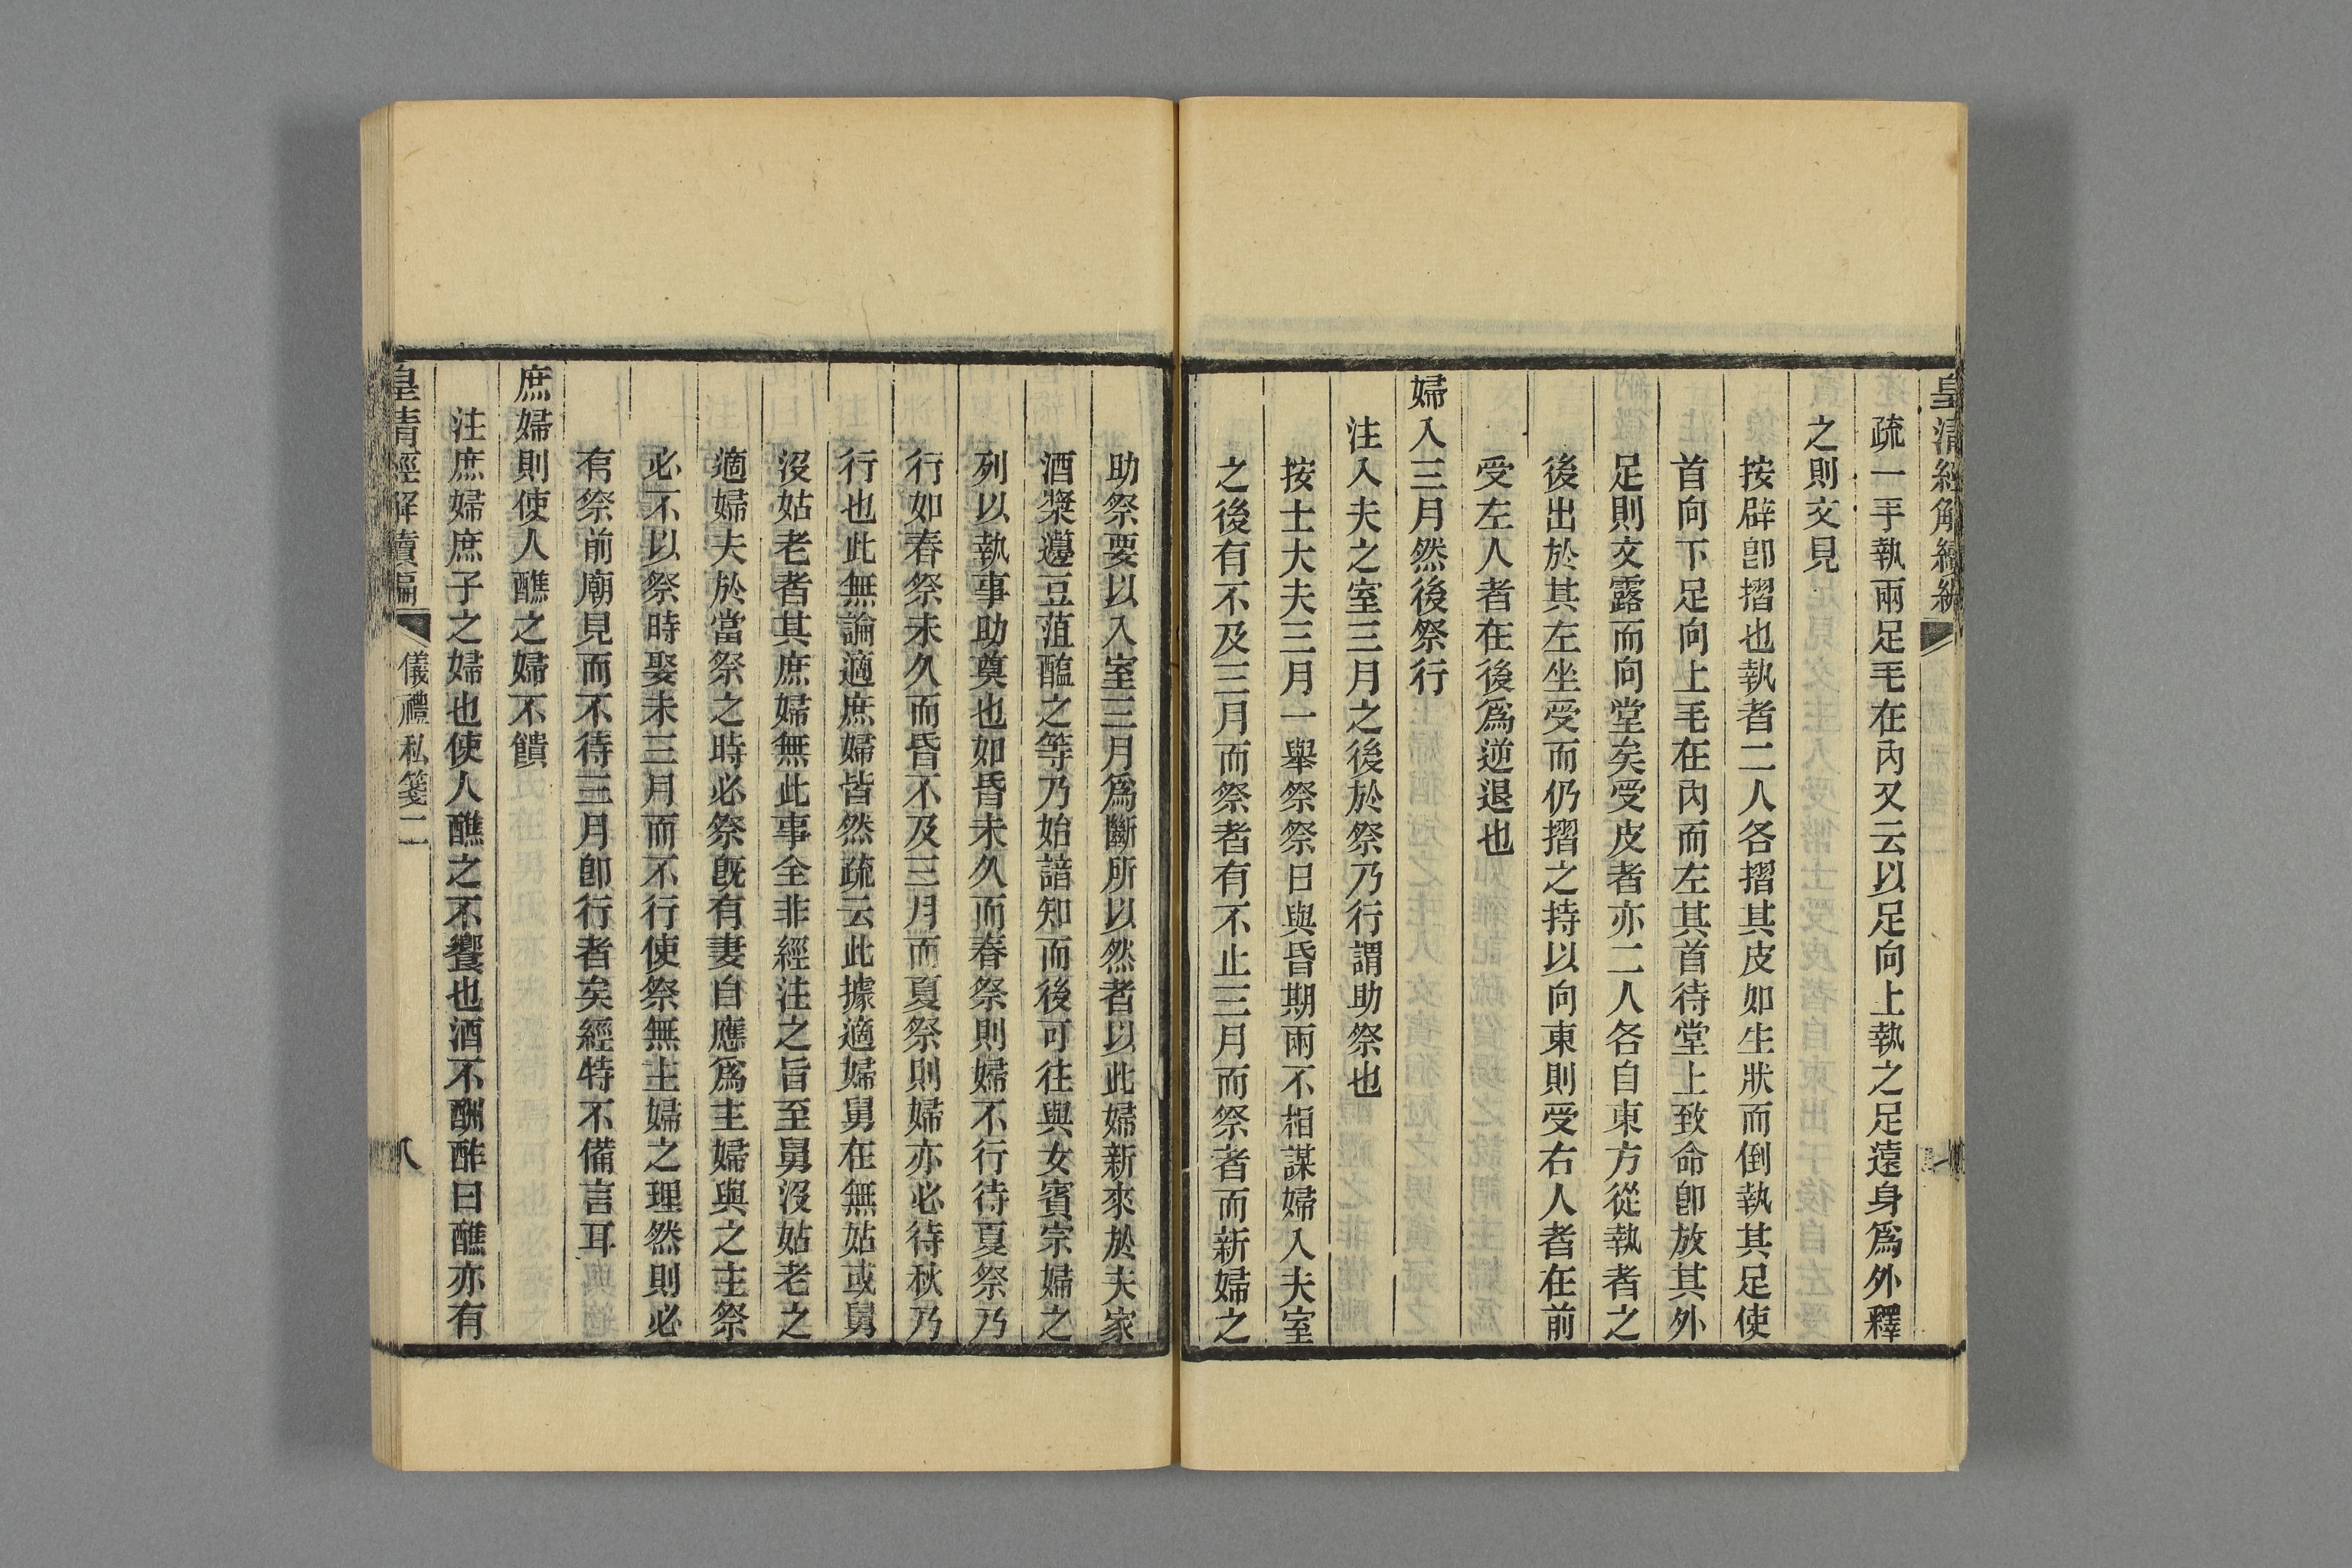 皇清經解續編
疏一手執兩足毛在內又云以足向上執之足遠身爲外釋
之則文見
按辟卽摺也執者二人各摺其皮如生狀而倒執其足使
首向下足向上毛在內而左其首待堂上致命卽放其外
足則文露而向堂矣受皮者亦二人各自東方從執者之
後出於其左坐受而仍摺之持以向東則受右人者在前
受左人者在後爲逆退也
婦入三月然後祭行
注入夫之室三月之後於祭乃行謂助祭也
按士大夫三月一舉祭祭日與昏期兩不相謀婦入夫室
之後有不及三月而祭者有不止三月而祭者而新婦之
助祭要以入室三月爲斷所以然者以此婦新來於夫家
酒漿籩豆菹醢之等乃始諳知而後可往與女賓宗婦之
列以執事助奠也如昏未久而春祭則婦不行待夏祭乃
行如春祭未久而昏不及三月而夏祭則婦亦必待秋乃
行也此無論適庶婦皆然疏云此據適婦舅在無姑或舅
沒姑老者其庶婦無此事全非經注之旨至舅沒姑老之
適婦夫於當祭之時必祭旣有妻自應爲主婦與之主祭
必不以祭時娶未三月而不行使祭無主婦之理然則必
有祭前廟見而不待三月卽行者矣經特不備言耳
庶婦則使人醮之婦不饋
注庶婦庶子之婦也使人醮之不饗也酒不酬酢曰醮亦有
皇清經解續編 儀禮私箋二 八